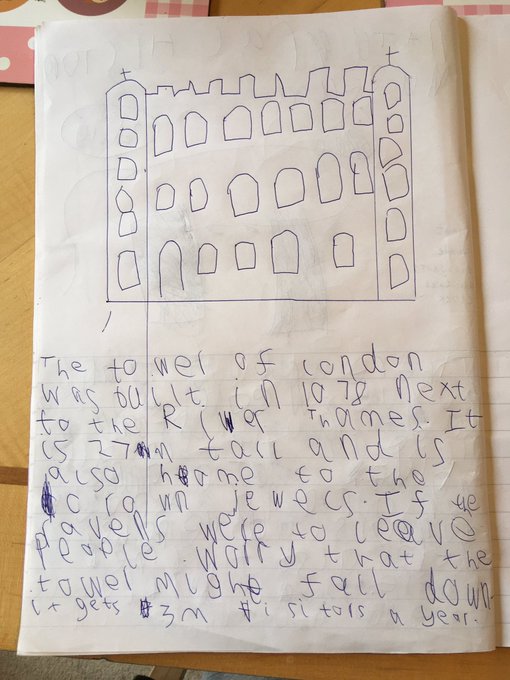 The tower of london
was built in 1078 next
to the River Thames. It
is 27m tall and is
also home to the
crown jewels. If the
ravens were to leave
people worry that the
tower might fall down.
it gets 3m visitors a year.